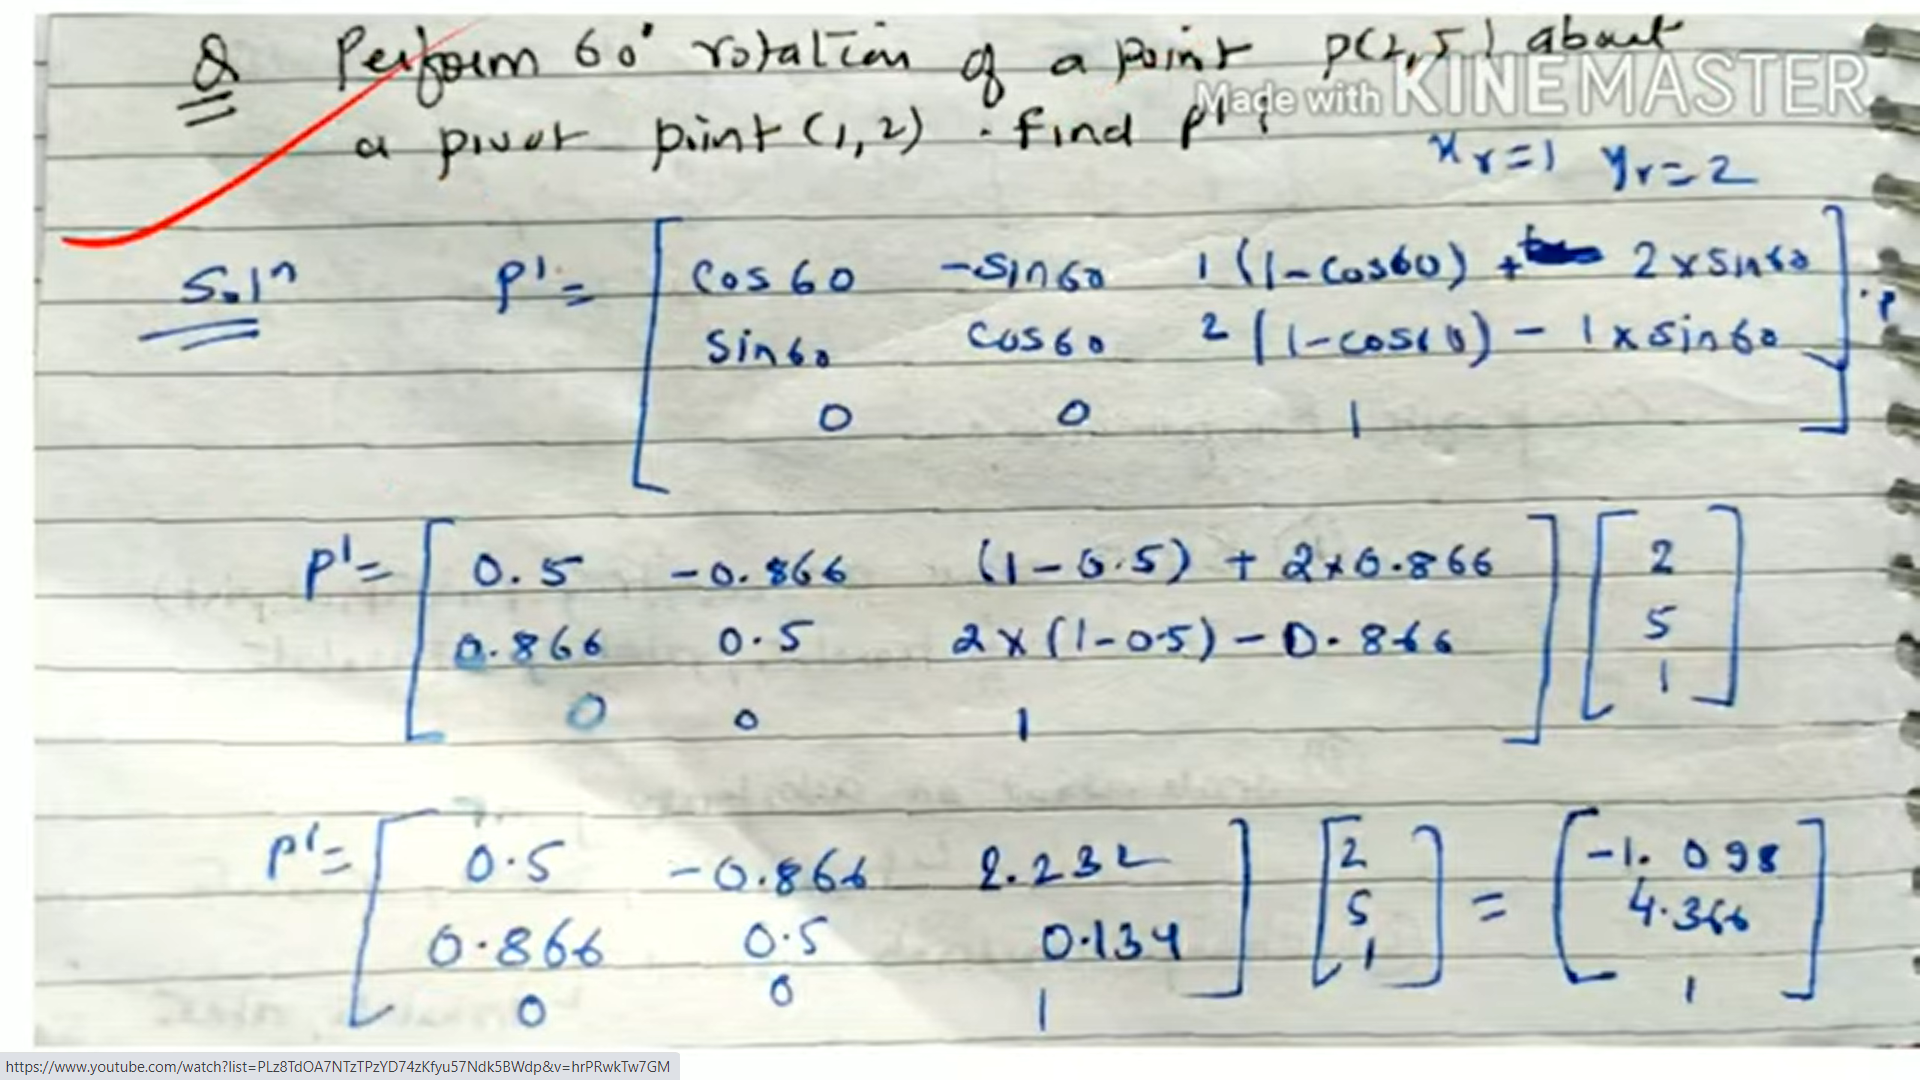 Q Perform 60° rotation of a point P(2,5) about
Made with KINEMASTER
a pivot point (1,2) . find P' ?
xr=1 yr=2
Soln P' = [ cos60 -sin60 1(1-cos60) + 2×sin60 ] . P
sin60 cos60 2(1-cos60) - 1×sin60
0 0 1
P' = [ 0.5 -0.866 (1-0.5) + 2×0.866 ] [ 2 ]
0.866 0.5 2×(1-0.5) - 0.866 5
0 0 1 1
P' = [ 0.5 -0.866 2.232 ] [ 2 ] = [ -1.098 ]
0.866 0.5 0.134 5 4.366
0 0 1 1 1
https://www.youtube.com/watch?list=PLz8TdOA7NTzTPzYD74zKfyu57Ndk5BWdp&v=hrPRwkTw7GM